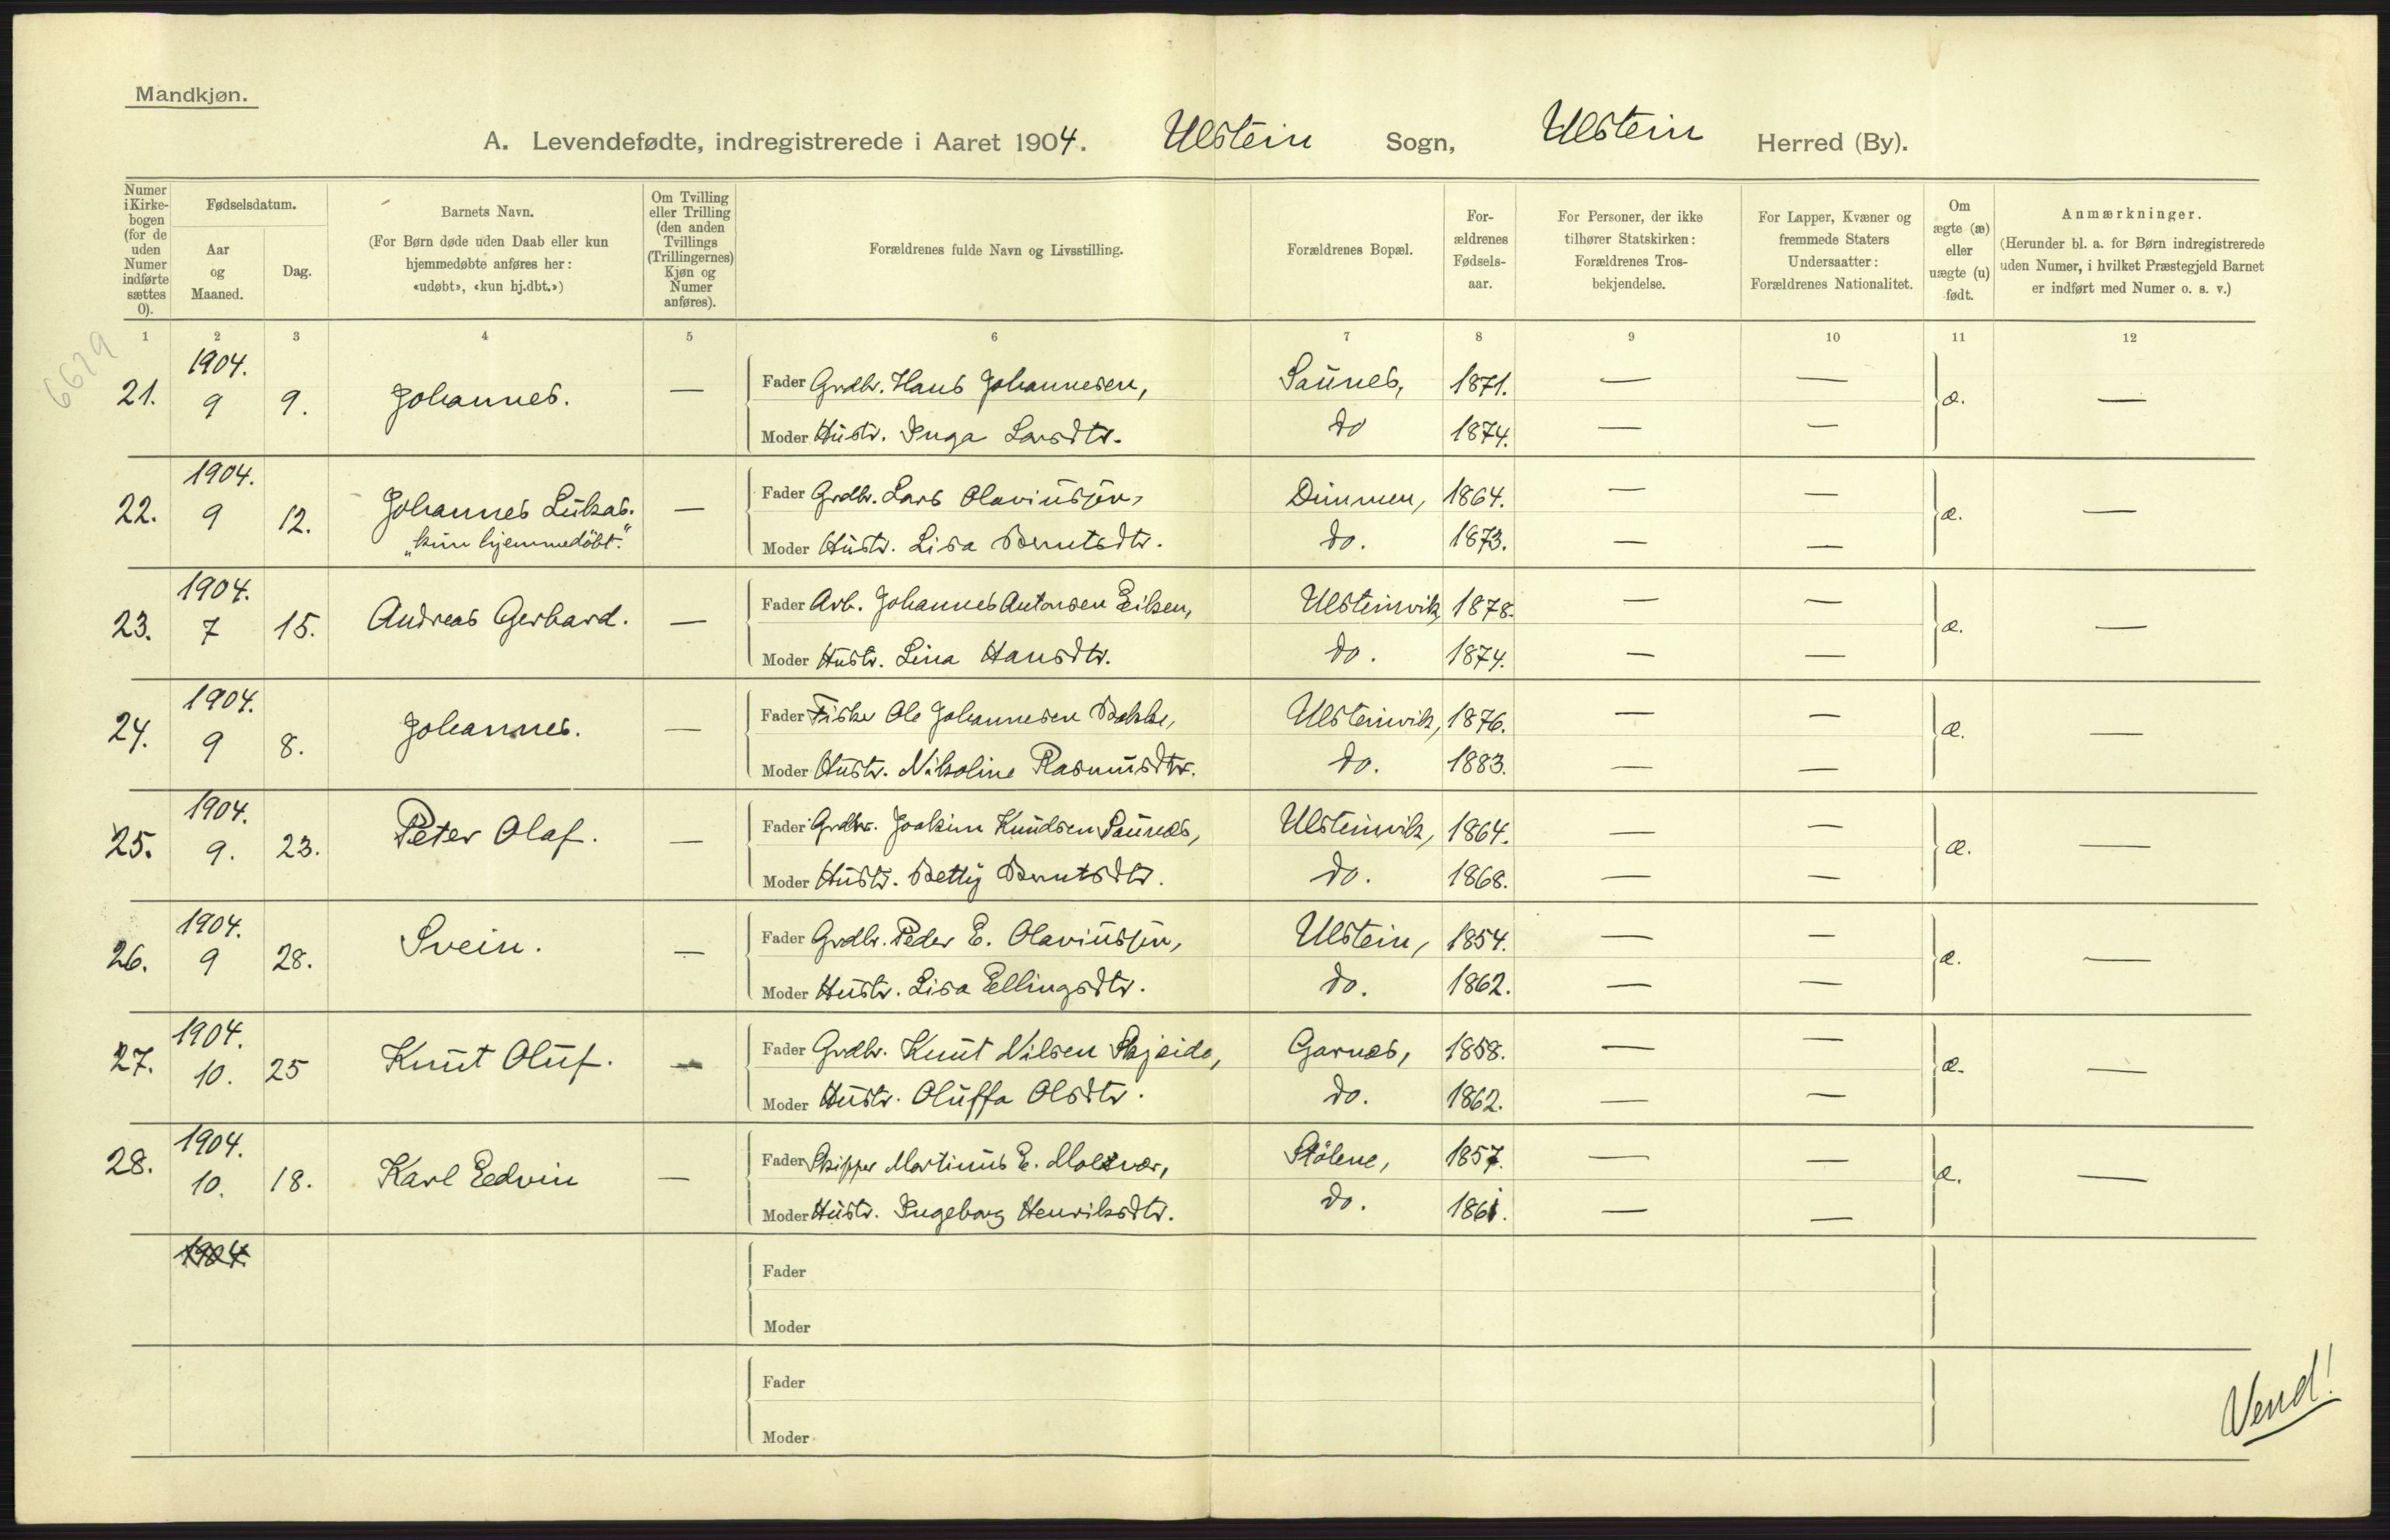 Mandkjøn.
A. Levendefødte, indregistrerede i Aaret 1904. Ulstein Sogn, Ulstein Herred (By).
Numer i Kirke-bogen (for de uden Numer indførte sættes 0).
Fødselsdatum.
Aar og Maaned.
Dag.
Barnets Navn.
(For Børn døde uden Daab eller kun hjemmedøbte anføres her: «udøbt», «kun hj.dbt.»)
Om Tvilling eller Trilling (den anden Tvillings (Trillingernes) Kjøn og Numer anføres).
Forældrenes fulde Navn og Livsstilling.
Forældrenes Bopæl.
For-ældrenes Fødsels-aar.
For Personer, der ikke tilhører Statskirken: Forældrenes Tros-bekjendelse.
For Lapper, Kvæner og fremmede Staters Undersaatter: Forældrenes Nationalitet.
Om ægte (æ) eller uægte (u) født.
Anmærkninger.
(Herunder bl. a. for Børn indregistrerede uden Numer, i hvilket Præstegjeld Barnet er indført med Numer o. s. v.)
1 2 3 4 5 6 7 8 9 10 11 12
6629
21. 1904. 9 9. Johannes. — Fader Grdbr. Hans Johannesen, Saunes, 1871. — — æ. —
Moder Hustr. Inga Larsdtr. do 1874. — —
22. 1904. 9 12. Johannes Lukas. — Fader Grdbr. Lars Olaviussön, Dimmen, 1864. — — æ. —
„kun hjemmedöbt." Moder Hustr. Lisa Berntsdtr. do. 1873. — —
23. 1904. 7 15. Andreas Gerhard. — Fader Arb. Johannes Antonsen Eiksen, Ulsteinvik, 1878. — — æ. —
Moder Hustr. Lina Hansdtr. do. 1874. — —
24. 1904. 9 8. Johannes. — Fader Fisker Ole Johannesen Bakke, Ulsteinvik, 1876. — — æ. —
Moder Hustr. Nikoline Rasmusdtr. do. 1883. — —
25. 1904. 9. 23. Peter Olaf. — Fader Grdbr. Joakim Knudsen Saunes, Ulsteinvik, 1864. — — æ. —
Moder Hustr. Betty Berntsdtr. do. 1868. — —
26. 1904. 9 28. Svein. — Fader Grdbr. Peder E. Olaviussön, Ulstein, 1854. — — æ. —
Moder Hustr. Lisa Ellingsdtr. do. 1862. — —
27. 1904. 10. 25 Knut Oluf. — Fader Grdbr. Knut Nilsen Skjeide, Garnes, 1858. — — æ. —
Moder Hustr. Oluffa Olsdtr. do. 1862. — —
28. 1904. 10. 18. Karl Edvin — Fader Skipper Martinus E. Molvær, Stölene, 1857. — — æ. —
Moder Hustr. Ingeborg Henriksdtr. do. 1861. — —
1904. Fader
Moder
Fader
Moder
Vend!